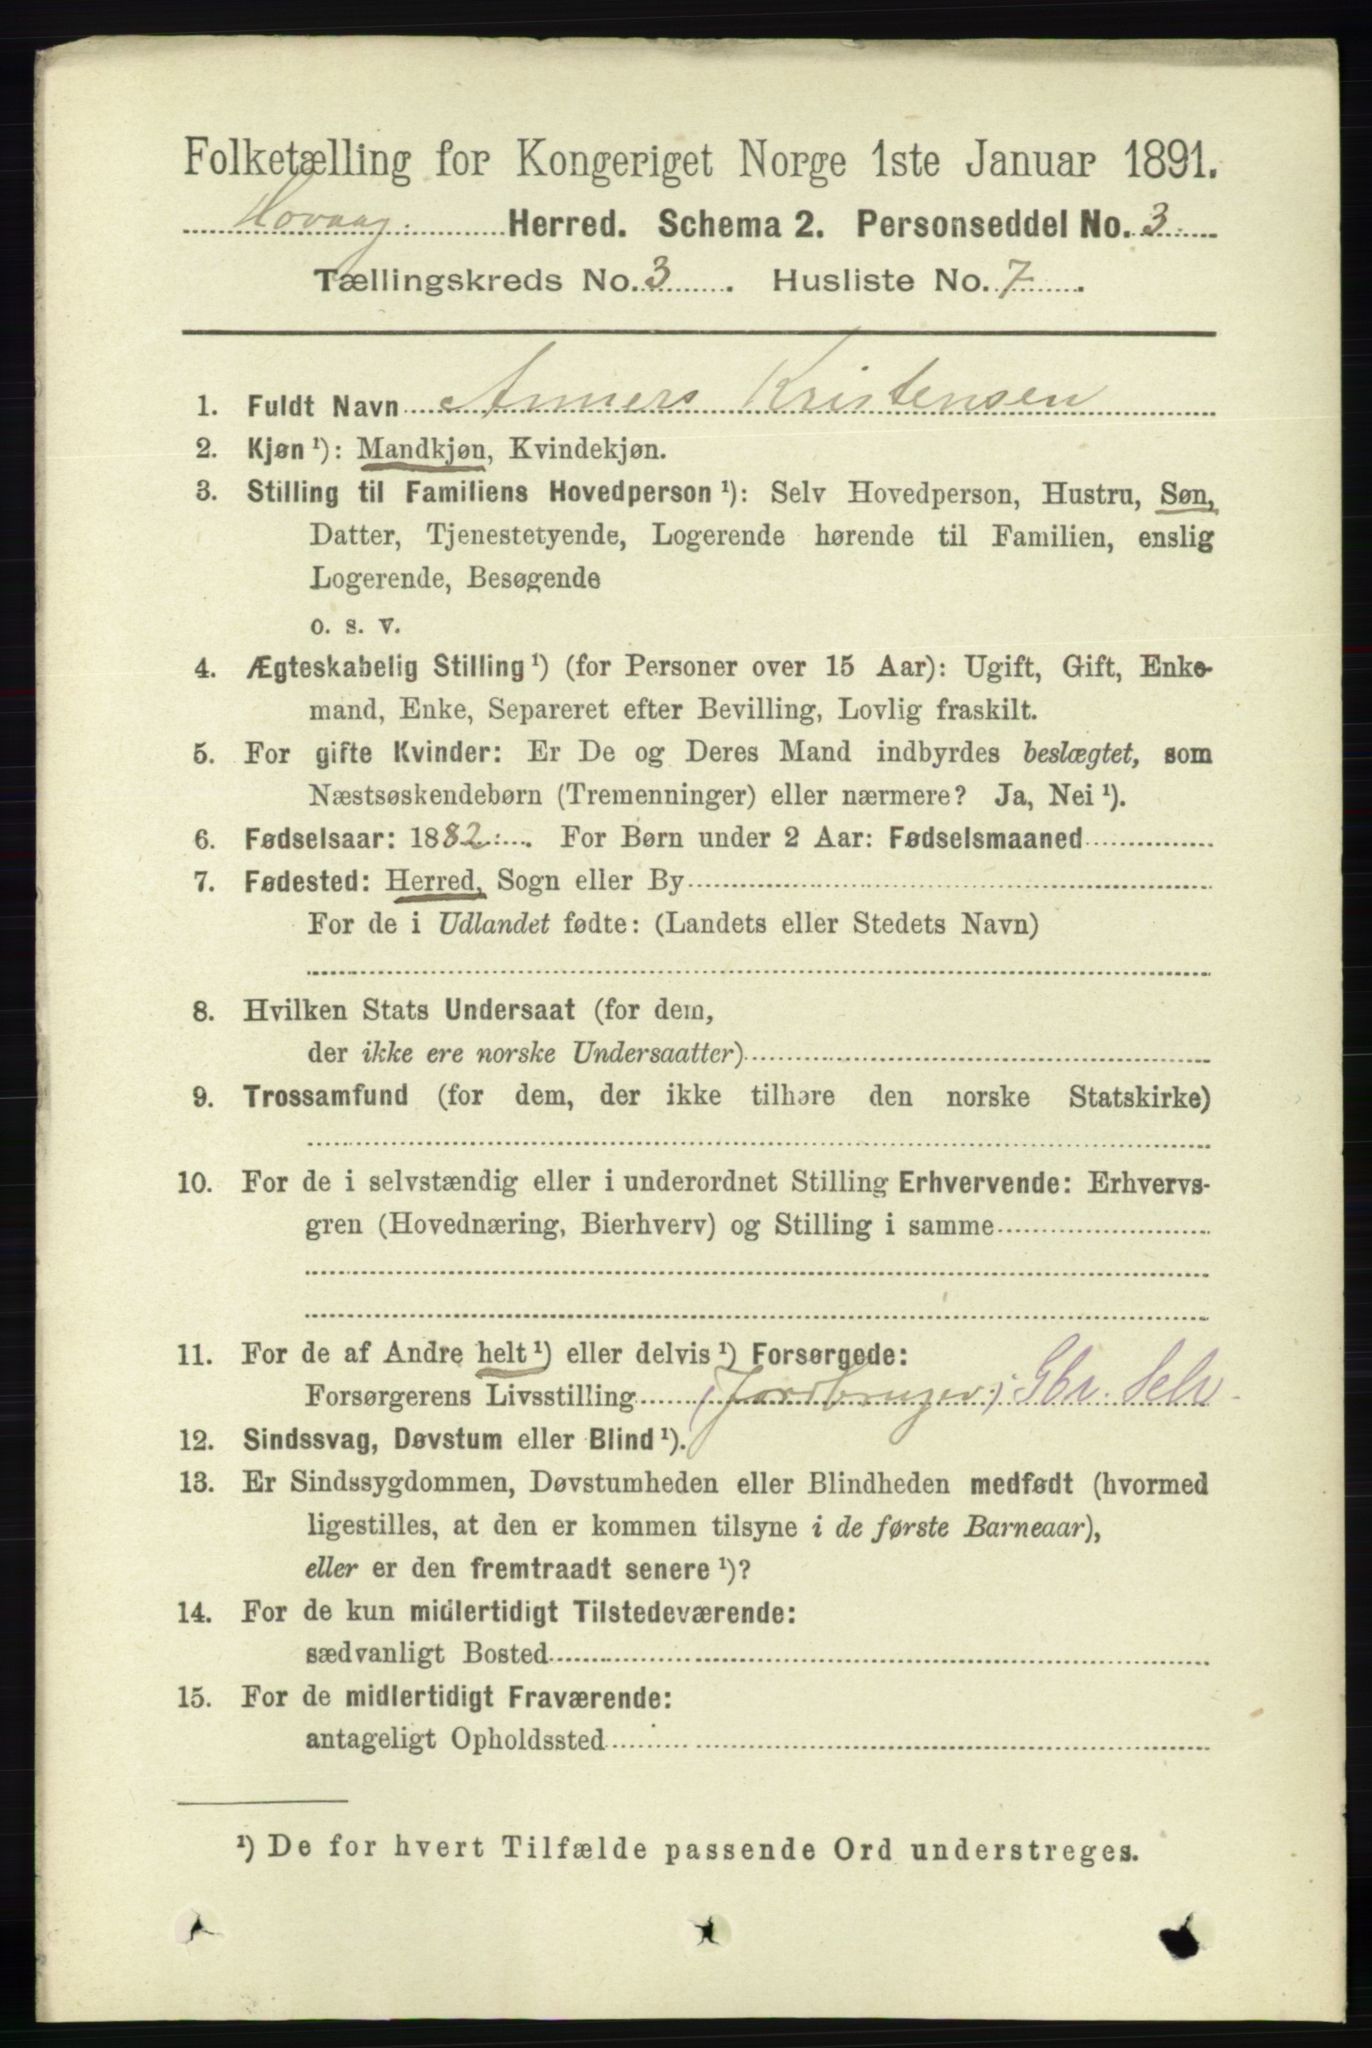 Folketælling for Kongeriget Norge 1ste Januar 1891.
Hovaag Herred. Schema 2. Personseddel No. 3
Tællingskreds No. 3. Husliste No. 7.
1. Fuldt Navn Anners Kristensen
2. Kjøn ¹): Mandkjøn, Kvindekjøn.
3. Stilling til Familiens Hovedperson ¹): Selv Hovedperson, Hustru, Søn,
Datter, Tjenestetyende, Logerende hørende til Familien, enslig
Logerende, Besøgende
o. s. v.
4. Ægteskabelig Stilling ¹) (for Personer over 15 Aar): Ugift, Gift, Enke-
mand, Enke, Separeret efter Bevilling, Lovlig fraskilt.
5. For gifte Kvinder: Er De og Deres Mand indbyrdes beslægtet, som
Næstsøskendebørn (Tremenninger) eller nærmere? Ja, Nei ¹).
6. Fødselsaar: 1882. For Børn under 2 Aar: Fødselsmaaned
7. Fødested: Herred, Sogn eller By
For de i Udlandet fødte: (Landets eller Stedets Navn)
8. Hvilken Stats Undersaat (for dem,
der ikke ere norske Undersaatter)
9. Trossamfund (for dem, der ikke tilhøre den norske Statskirke)
10. For de i selvstændig eller i underordnet Stilling Erhvervende: Erhvervs-
gren (Hovednæring, Bierhverv) og Stilling i samme
11. For de af Andre helt ¹) eller delvis ¹) Forsørgede:
Forsørgerens Livsstilling (Jordbruger) Gbr. Selv
12. Sindssvag, Døvstum eller Blind ¹).
13. Er Sindssygdommen, Døvstumheden eller Blindheden medfødt (hvormed
ligestilles, at den er kommen tilsyne i de første Barneaar),
eller er den fremtraadt senere ¹)?
14. For de kun midlertidigt Tilstedeværende:
sædvanligt Bosted
15. For de midlertidigt Fraværende:
antageligt Opholdssted
¹) De for hvert Tilfælde passende Ord understreges.